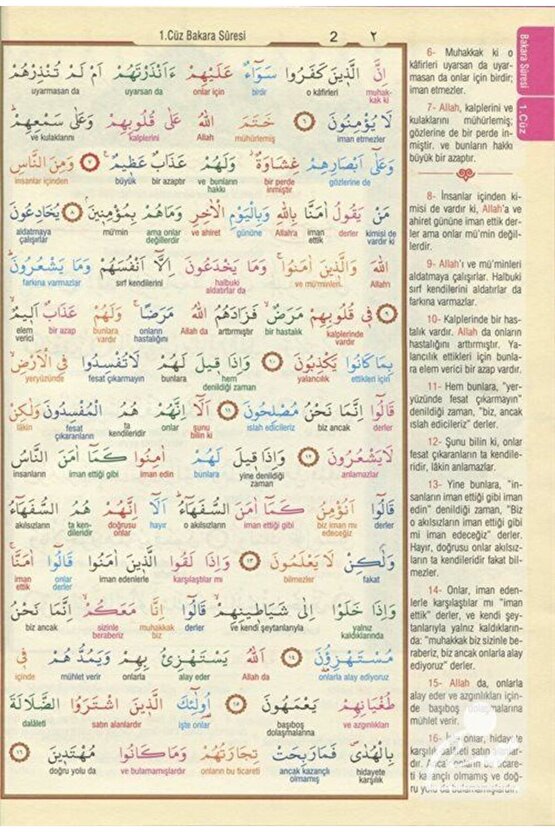 1.Cüz Bakara Sûresi 2 ٢
Bakara Sûresi 1.Cüz
اِنَّ الَّذٖينَ كَفَرُوا سَوَٓاءٌ عَلَيْهِمْ ءَاَنْذَرْتَهُمْ اَمْ لَمْ تُنْذِرْهُمْ
muhakkak ki o kâfirleri birdir onlar için uyarsan da uyarmasan da
لَا يُؤْمِنُونَ ﴿٦﴾ خَتَمَ اللّٰهُ عَلٰى قُلُوبِهِمْ وَعَلٰى سَمْعِهِمْ
iman etmezler mühürlemiş Allah kalplerini ve kulaklarını
وَعَلٰٓى اَبْصَارِهِمْ غِشَاوَةٌ وَلَهُمْ عَذَابٌ عَظٖيمٌ ﴿٧﴾ وَمِنَ النَّاسِ
gözlerine de bir perde inmiştir ve bunların hakkı bir azaptır büyük insanlar içinden
مَنْ يَقُولُ اٰمَنَّا بِاللّٰهِ وَبِالْيَوْمِ الْاٰخِرِ وَمَاهُمْ بِمُؤْمِنٖينَ ﴿٨﴾ يُخَادِعُونَ
kimisi de vardır ki derler iman ettik Allah'a gününe ve ahiret ama onlar değillerdir mü'min aldatmaya çalışırlar
اللّٰهَ وَالَّذٖينَ اٰمَنُوا وَمَا يَخْدَعُونَ اِلَّٓا اَنْفُسَهُمْ وَمَا يَشْعُرُونَ
Allah'ı ve mü'minleri halbuki aldatırlar da sırf kendilerini farkına varmazlar
﴿٩﴾ فٖى قُلُوبِهِمْ مَرَضٌ فَزَادَهُمُ اللّٰهُ مَرَضًا وَلَهُمْ عَذَابٌ اَلٖيمٌ
kalplerinde vardır bir hastalık arttırmıştır Allah da onların hastalığını bunlara vardır bir azap elem verici
بِمَا كَانُوا يَكْذِبُونَ ﴿١٠﴾ وَاِذَا قٖيلَ لَهُمْ لَاتُفْسِدُوا فِى الْاَرْضِ
ettikleri için yalancılık hem denildiği zaman bunlara fesat çıkarmayın yeryüzünde
قَالُٓوا اِنَّمَا نَحْنُ مُصْلِحُونَ ﴿١١﴾ اَلَٓا اِنَّهُمْ هُمُ الْمُفْسِدُونَ وَلٰكِنْ
derler biz ancak ıslah edicileriz şunu bilin ki onlar ta kendileridir fesat çıkaranların lâkin
لَايَشْعُرُونَ ﴿١٢﴾ وَاِذَا قٖيلَ لَهُمْ اٰمِنُوا كَمَٓا اٰمَنَ النَّاسُ
anlamazlar yine denildiği zaman bunlara iman edin iman ettiği gibi insanların
قَالُٓوا اَنُؤْمِنُ كَمَٓا اٰمَنَ السُّفَهَٓاءُ اَلَٓا اِنَّهُمْ هُمُ السُّفَهَٓاءُ
derler biz iman mı edeceğiz iman ettiği gibi o akılsızların hayır doğrusu onlar ta kendileridir akılsızların
وَلٰكِنْ لَا يَعْلَمُونَ ﴿١٣﴾ وَاِذَا لَقُوا الَّذٖينَ اٰمَنُوا قَالُٓوا اٰمَنَّا
fakat bilmezler karşılaştılar mı iman edenlerle derler iman ettik
وَاِذَا خَلَوْا اِلٰى شَيَاطٖينِهِمْ قَالُٓوا اِنَّا مَعَكُمْ اِنَّمَا نَحْنُ
yalnız kaldıklarında ve kendi şeytanlarıyla derler muhakkak biz sizinle beraberiz biz ancak
مُسْتَهْزِؤُنَ ﴿١٤﴾ اَللّٰهُ يَسْتَهْزِئُ بِهِمْ وَيَمُدُّهُمْ فٖى
onlarla alay ediyoruz Allah da alay eder onlarla mühlet verir içinde
طُغْيَانِهِمْ يَعْمَهُونَ ﴿١٥﴾ اُولٰٓئِكَ الَّذٖينَ اشْتَرَوُا الضَّلَالَةَ
ve azgınlıkları başıboş dolaşmalarına işte onlar satın alanlardır dalâleti
بِالْهُدٰى فَمَا رَبِحَتْ تِجَارَتُهُمْ وَمَا كَانُوا مُهْتَدٖينَ ﴿١٦﴾
hidayete karşılık ancak kazançlı olmamış onların bu ticareti ve bulamamışlardır doğru yolu da
6- Muhakkak ki o
kâfirleri uyarsan da uyar-
masan da onlar için birdir;
iman etmezler.
7- Allah, kalplerini ve
kulaklarını mühürlemiş;
gözlerine de bir perde in-
miştir. ve bunların hakkı
büyük bir azaptır.
8- İnsanlar içinden ki-
misi de vardır ki, Allah'a ve
ahiret gününe iman ettik der-
ler ama onlar mü'min değil-
lerdir.
9- Allah'ı ve mü'minleri
aldatmaya çalışırlar. Halbuki
sırf kendilerini aldatırlar da
farkına varmazlar.
10- Kalplerinde bir has-
talık vardır. Allah da onların
hastalığını arttırmıştır. Ya-
lancılık ettikleri için bunla-
ra elem verici bir azap vardır.
11- Hem bunlara, "yer-
yüzünde fesat çıkarmayın"
denildiği zaman, "biz, ancak
ıslah edicileriz" derler.
12- Şunu bilin ki, onlar
fesat çıkaranların ta kendile-
ridir, lâkin anlamazlar.
13- Yine bunlara, "in-
sanların iman ettiği gibi iman
edin" denildiği zaman, "Biz
o akılsızların iman ettiği gibi
mi iman edeceğiz" derler.
Hayır, doğrusu onlar akılsız-
ların ta kendileridir fakat bil-
mezler.
14- Onlar, iman eden-
lerle karşılaştılar mı "iman
ettik" derler, ve kendi şey-
tanlarıyla yalnız kaldıkların-
da: "muhakkak biz sizinle be-
raberiz, biz ancak onlarla alay
ediyoruz" derler.
15- Allah da, onlarla
alay eder ve azgınlıkları için-
de başıboş dolaşmalarına
mühlet verir.
16- onlar, hidayete
karşılık dalâleti satın alanlar-
dır. Ancak onların bu ticare-
ti kazançlı olmamış ve doğ-
ru yolu da bulamamışlardır.